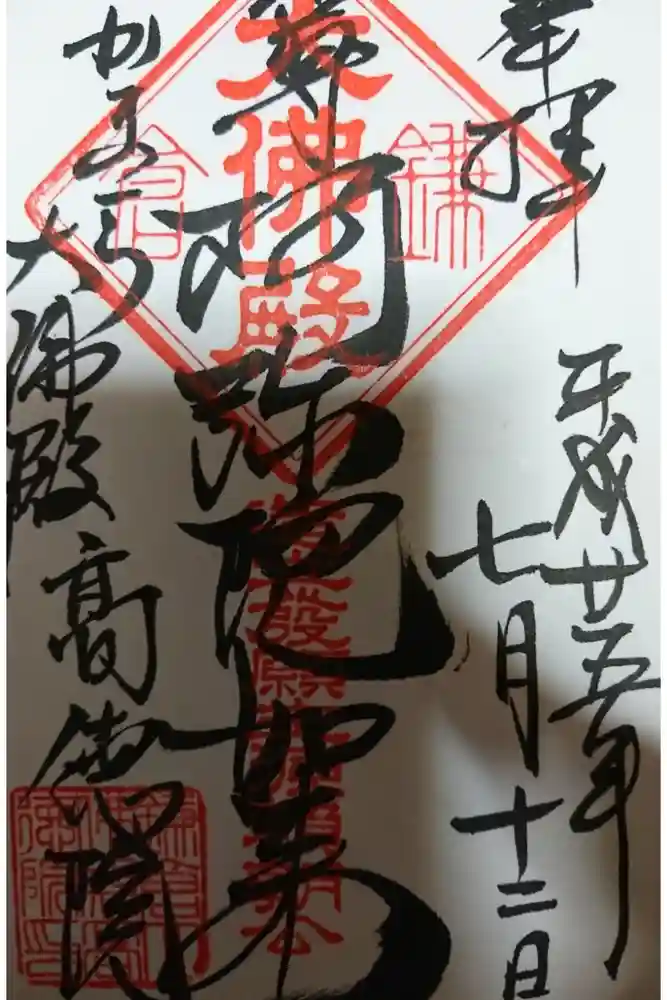 奉拝
平成廿五年
七月十二日
阿弥陀如来
かまくら
大佛殿
高徳院
大佛殿
鎌倉
發願